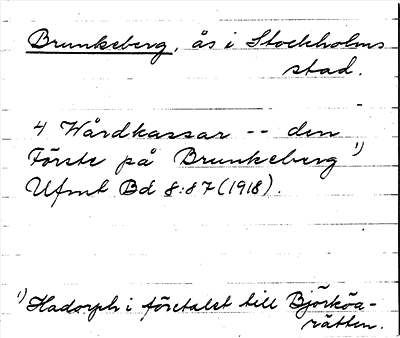 Brunkeberg, ås i Stockholms
stad.
4 Wårdkasar -- den
Förste på Brunkeberg 1)
Ufmt Bd 8:87 (1918).
1) Hadorph i företalet till Björköa-
rätten.